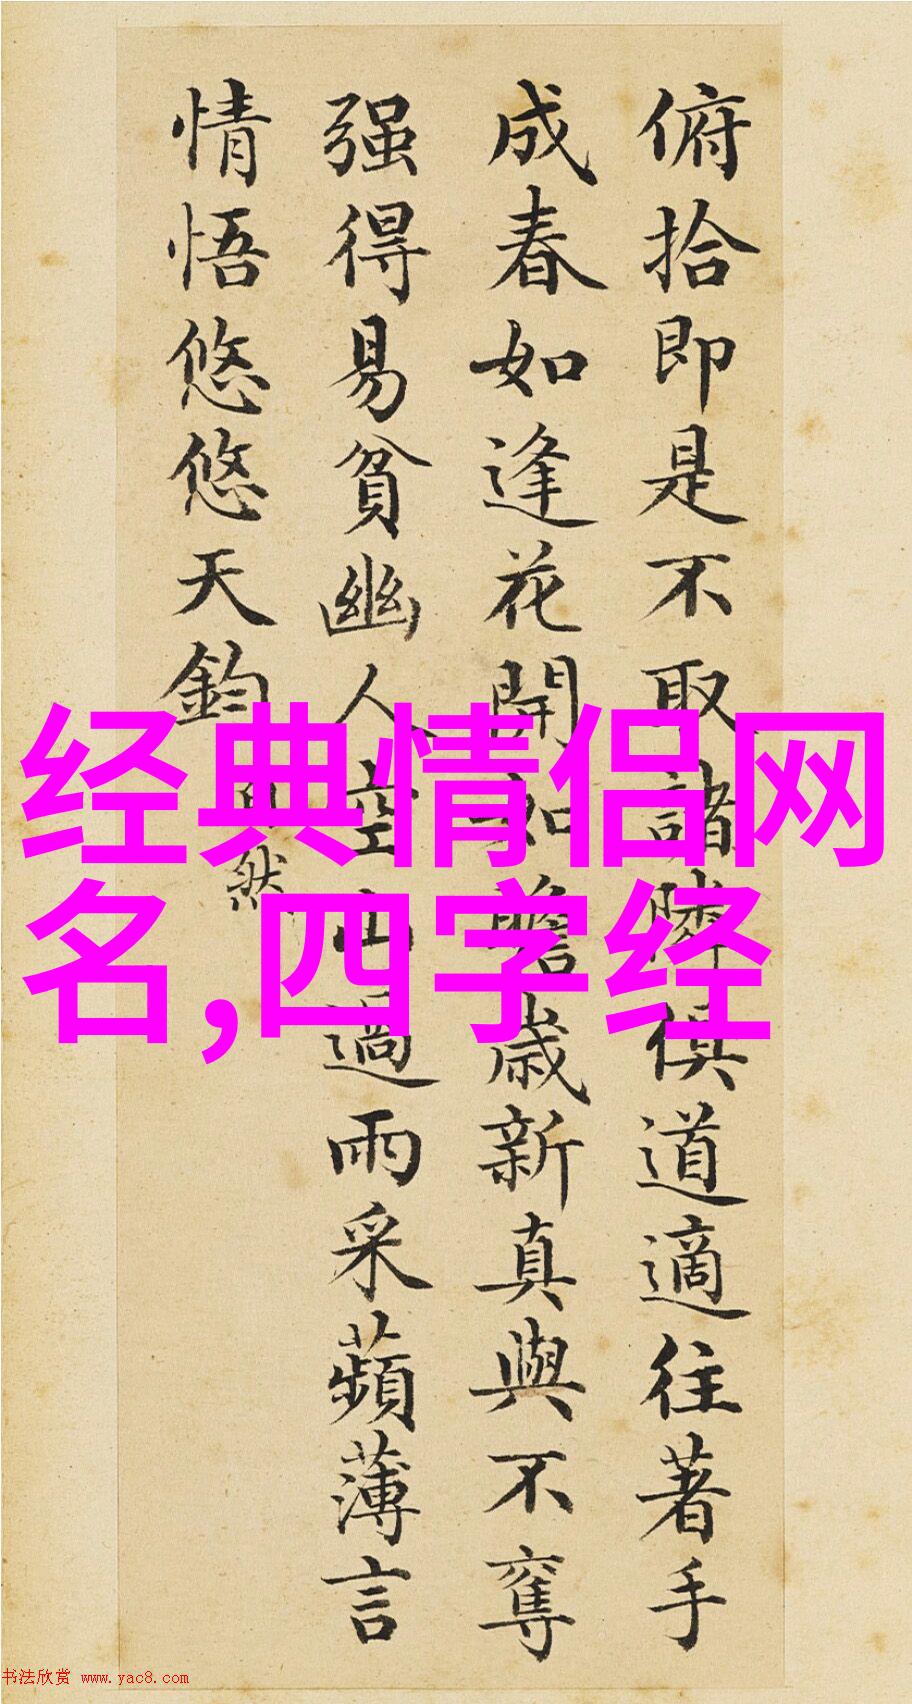 俯拾即是不取諸隣俱道適往著手
成春如逢花開如瞻歲新真與不奪
强得易貧幽人空山過雨采蘋薄言
情悟悠悠天鈞
然
经典情侣网
名,四字经
书法欣赏 www.yac8.com